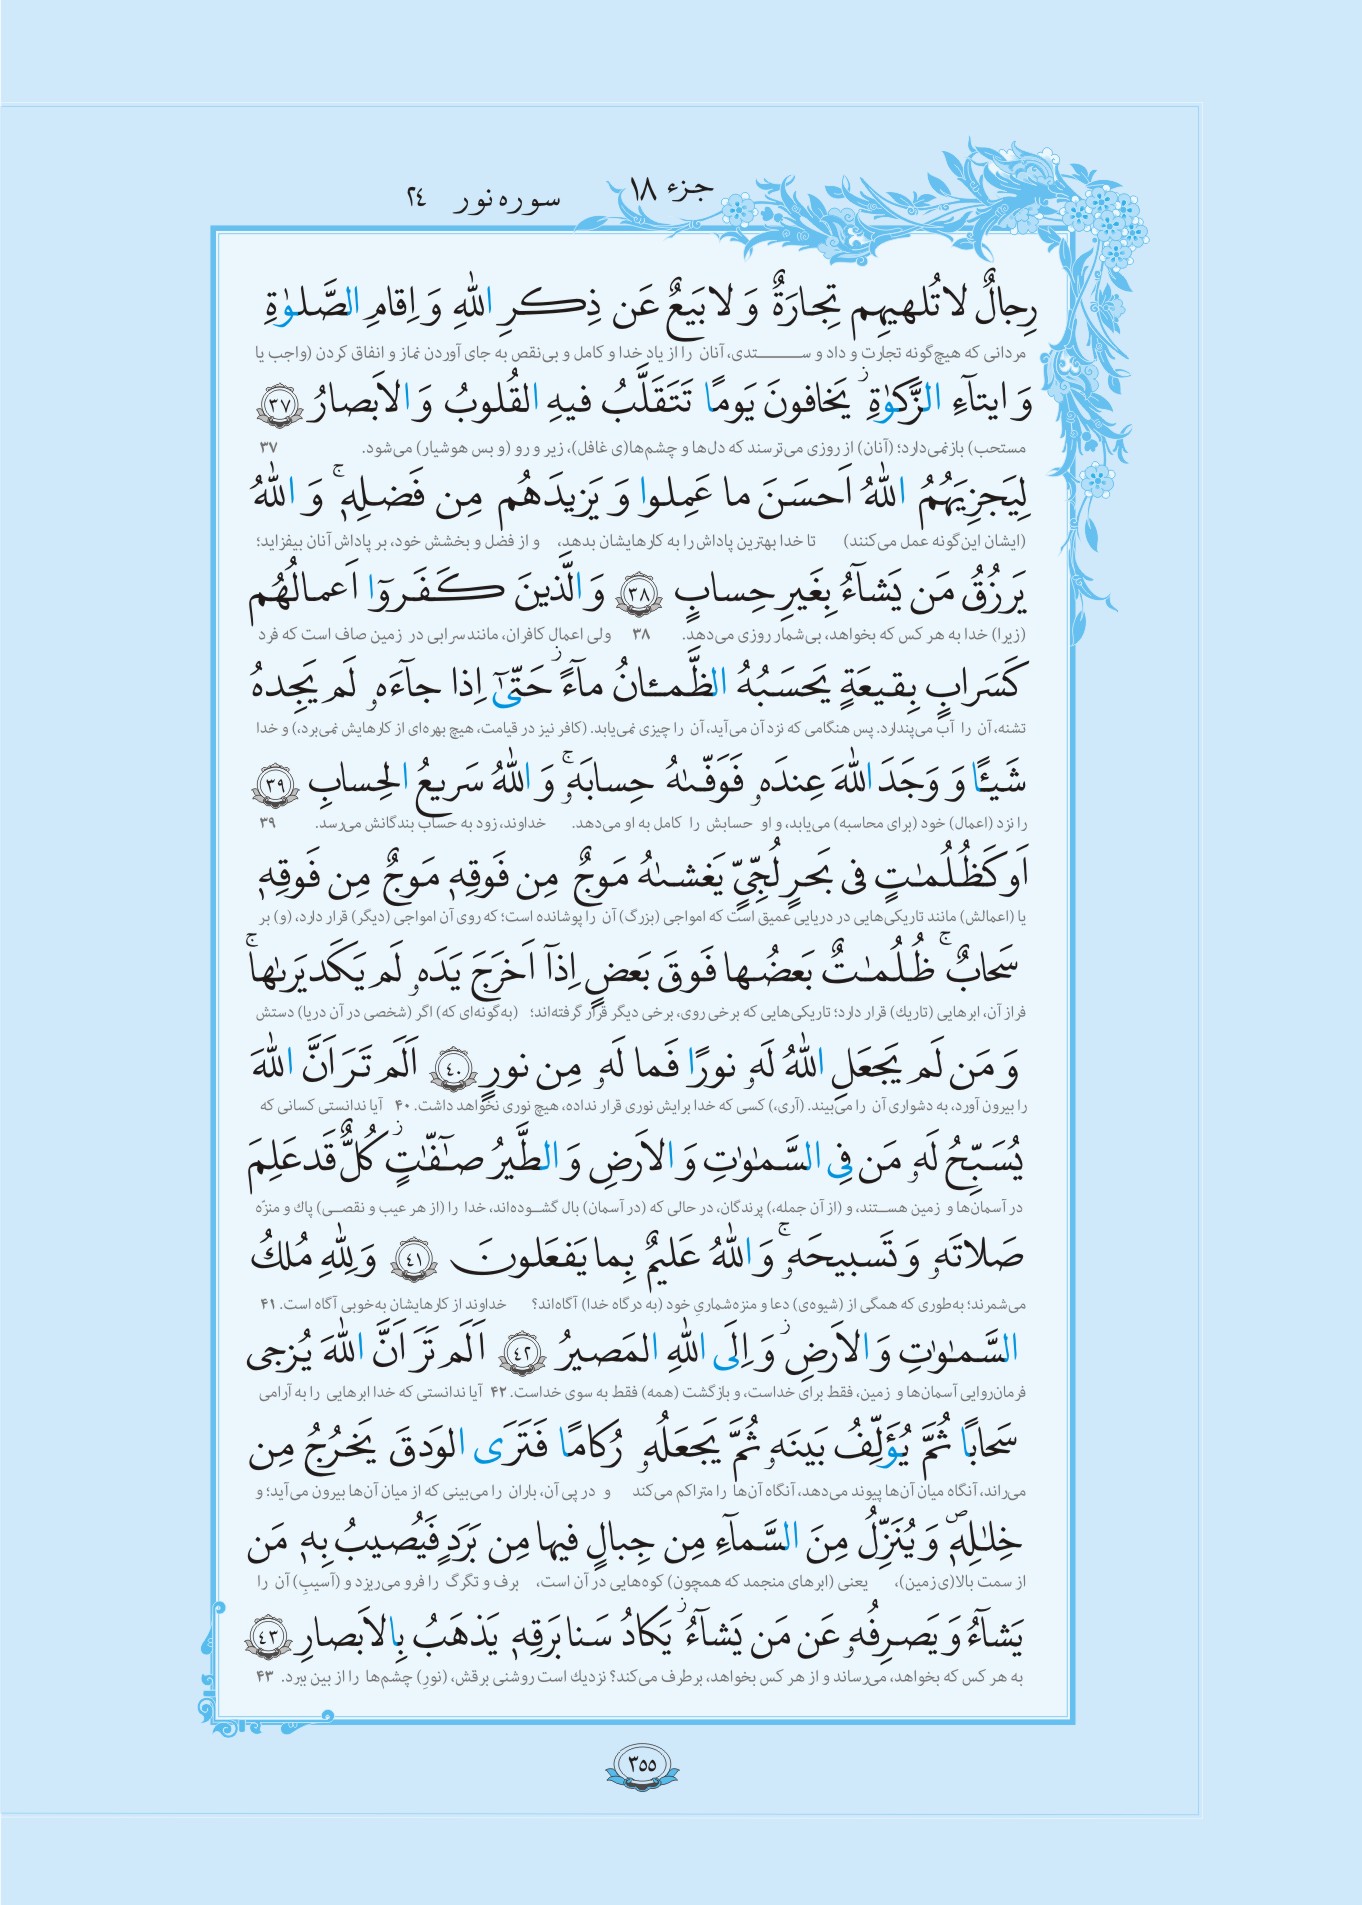 جزء ۱۸
سوره نور ۲٤
رِجالٌ لا تُلهيهِم تِجارَةٌ وَ لا بَيعٌ عَن ذِكرِ اللّٰهِ وَ اِقامِ الصَّلوٰةِ
مردانی که هیچ‌گونه تجارت و داد و ستدی، آنان را از یاد خدا و کامل و بی‌نقص به جای آوردن نماز و انفاق کردن (واجب یا
وَ ايتآءِ الزَّكوٰةِ ۙ يَخافونَ يَومًا تَتَقَلَّبُ فيهِ القُلوبُ وَ الاَبصارُ ﴿۳۷﴾
مستحب) باز نمی‌دارد؛ (آنان) از روزی می‌ترسند که دل‌ها و چشم‌ها(ی غافل)، زیر و رو (و بس هوشیار) می‌شود. ۳۷
لِيَجزِيَهُمُ اللّٰهُ اَحسَنَ ما عَمِلوا وَ يَزيدَهُم مِن فَضلِهٖ ۚ وَ اللّٰهُ
(ایشان این‌گونه عمل می‌کنند) تا خدا بهترین پاداش را به کارهایشان بدهد، و از فضل و بخشش خود، بر پاداش آنان بیفزاید؛
يَرزُقُ مَن يَشآءُ بِغَيرِ حِسابٍ ﴿۳۸﴾ وَ الَّذينَ كَفَروٓا اَعمالُهُم
(زیرا) خدا به هر کس که بخواهد، بی‌شمار روزی می‌دهد. ۳۸ ولی اعمال کافران، مانند سرابی در زمین صاف است که فرد
كَسَرابٍ بِقيعَةٍ يَحسَبُهُ الظَّمـئانُ مآءً ز حَتّىٰٓ اِذا جآءَهٗ لَم يَجِدهُ
تشنه، آن را آب می‌پندارد. پس هنگامی که نزد آن می‌آید، آن را چیزی نمی‌یابد. (کافر نیز در قیامت، هیچ بهره‌ای از کارهایش نمی‌برد،) و خدا
شَيـًٔا وَ وَجَدَ اللّٰهَ عِندَهٗ فَوَفّىٰهُ حِسابَهٗ ۚ وَ اللّٰهُ سَريعُ الحِسابِ ﴿۳۹﴾
را نزد (اعمال) خود (برای محاسبه) می‌یابد، و او حسابش را کامل به او می‌دهد. خداوند، زود به حساب بندگانش می‌رسد. ۳۹
اَو كَظُلُمٰتٍ فى بَحرٍ لُجِّىٍّ يَغشىٰهُ مَوجٌ مِن فَوقِهٖ مَوجٌ مِن فَوقِهٖ
یا (اعمالش) مانند تاریکی‌هایی در دریایی عمیق است که امواجی (بزرگ) آن را پوشانده است؛ که روی آن امواجی (دیگر) قرار دارد، (و) بر
سَحابٌ ۚ ظُلُمٰتٌ بَعضُها فَوقَ بَعضٍ اِذآ اَخرَجَ يَدَهٗ لَم يَكَد يَرىٰها ۚ
فراز آن، ابرهایی (تاریك) قرار دارد؛ تاریکی‌هایی که برخی روی، برخی دیگر قرار گرفته‌اند؛ (به‌گونه‌ای که) اگر (شخصی در آن دریا) دستش
وَ مَن لَم يَجعَلِ اللّٰهُ لَهٗ نورًا فَما لَهٗ مِن نورٍ ﴿۴۰﴾ اَلَم تَرَ اَنَّ اللّٰهَ
را بیرون آورد، به دشواری آن را می‌بیند. (آری،) کسی که خدا برایش نوری قرار نداده، هیچ نوری نخواهد داشت. ۴۰ آیا ندانستی کسانی که
يُسَبِّحُ لَهٗ مَن فِى السَّمٰوٰتِ وَ الاَرضِ وَ الطَّيرُ صآفّٰتٍ ز كُلٌّ قَد عَلِمَ
در آسمان‌ها و زمین هستند، و (از آن جمله،) پرندگان، در حالی که (در آسمان) بال گشوده‌اند، خدا را (از هر عیب و نقصی) پاك و منزّه
صَلاتَهٗ وَ تَسبيحَهٗ ۚ وَ اللّٰهُ عَليمٌ بِما يَفعَلونَ ﴿۴۱﴾ وَ لِلّٰهِ مُلكُ
می‌شمرند؛ به‌طوری که همگی از (شیوه‌ی) دعا و منزه‌شماریِ خود (به درگاه خدا) آگاه‌اند؟ خداوند از کارهایشان به‌خوبی آگاه است. ۴۱
السَّمٰوٰتِ وَ الاَرضِ ز وَ اِلَى اللّٰهِ المَصيرُ ﴿۴۲﴾ اَلَم تَرَ اَنَّ اللّٰهَ يُزجى
فرمان‌روایی آسمان‌ها و زمین، فقط برای خداست، و بازگشت (همه) فقط به سوی خداست. ۴۲ آیا ندانستی که خدا ابرهایی را به آرامی
سَحابًا ثُمَّ يُؤَلِّفُ بَينَهٗ ثُمَّ يَجعَلُهٗ رُكامًا فَتَرَى الوَدقَ يَخرُجُ مِن
می‌راند، آنگاه میان آن‌ها پیوند می‌دهد، آنگاه آن‌ها را متراکم می‌کند و در پی آن، باران را می‌بینی که از میان آن‌ها بیرون می‌آید؛ و
خِلٰلِهٖ ص وَ يُنَزِّلُ مِنَ السَّمآءِ مِن جِبالٍ فيها مِن بَرَدٍ فَيُصيبُ بِهٖ مَن
از سمت بالا(ی زمین)، یعنی (ابرهای منجمد که همچون) کوه‌هایی در آن است، برف و تگرگ را فرو می‌ریزد و (آسیبِ) آن را
يَشآءُ وَ يَصرِفُهٗ عَن مَن يَشآءُ ز يَكادُ سَنا بَرقِهٖ يَذهَبُ بِالاَبصارِ ﴿۴۳﴾
به هر کس که بخواهد، می‌رساند و از هر کس بخواهد، برطرف می‌کند؟ نزدیك است روشنی برقش، (نورِ) چشم‌ها را از بین ببرد. ۴۳
۳۵۵